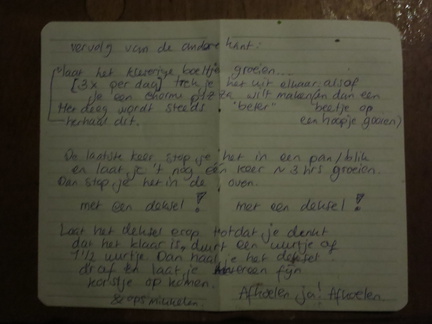 vervolg van de andere kant:
laat het kleverige boeltje groeien...
[3x per dag] trek je het uit elkaar alsof
je een enorme pizza wilt maken (en dan een
Het deeg wordt steeds "beter" beetje op
herhaal dit. een hoopje gooien)
De laatste keer stop je het in een pan/blik
en laat je 't nog één keer ~ 3 hrs groeien.
Dan stop je het in de oven.
met een deksel! met een deksel!
Laat het deksel erop totdat je denkt
dat het klaar is, duurt een uurtje of
1 1/2 uurtje. Dan haal je het deksel
eraf en laat je er een fijn
korstje op komen.
Afkoelen ja! Afkoelen.